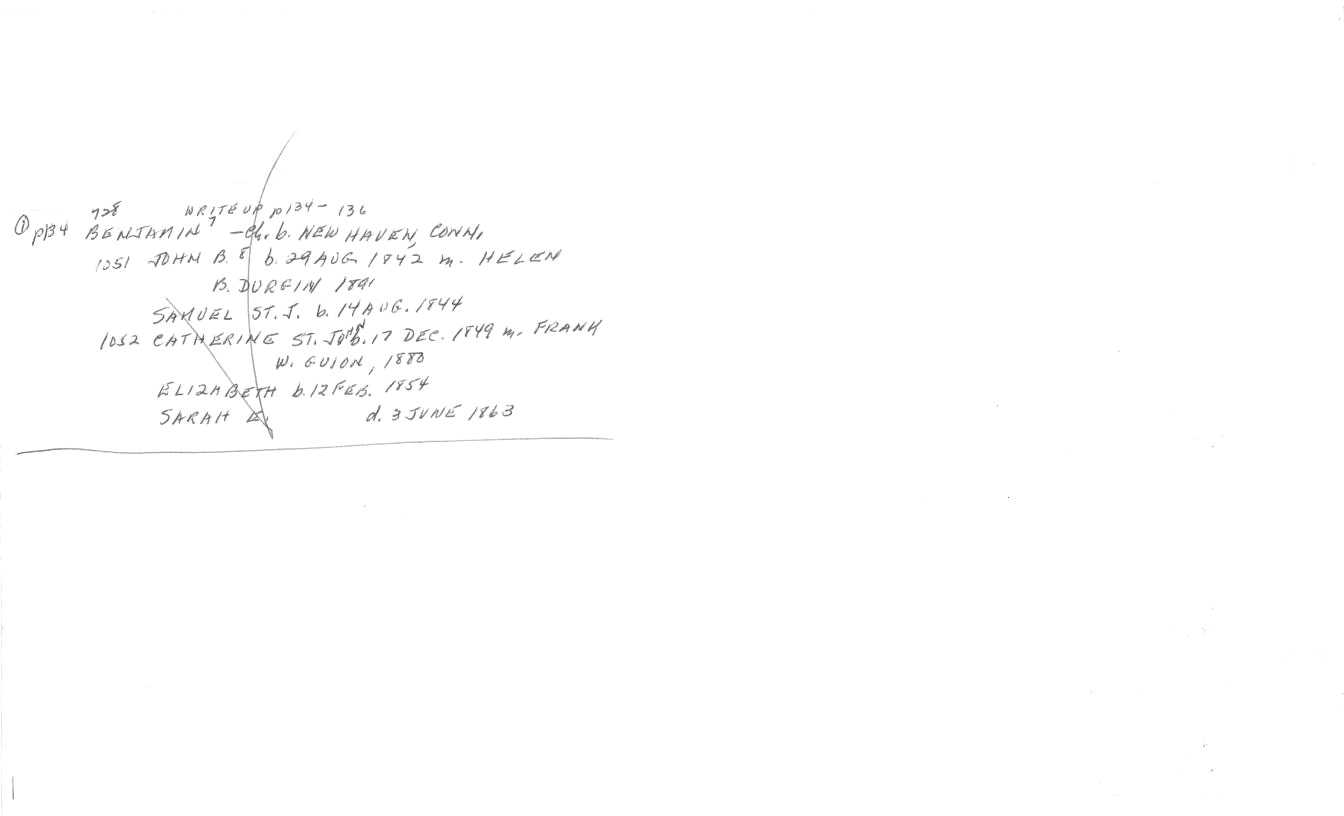 728 WRITE UP p134-136
① p134 BENJAMIN⁷ - Ch. b. NEW HAVEN, CONN.
1051 JOHN B.⁸ b. 29 AUG 1842 m. HELEN
B. DURGIN 1891
SAMUEL ST. J. b. 14 AUG. 1844
1052 CATHERINE ST. JOHN b. 17 DEC. 1849 m. FRANK
W. GUION, 1880
ELIZABETH b. 12 FEB. 1854
SARAH E. d. 3 JUNE 1863